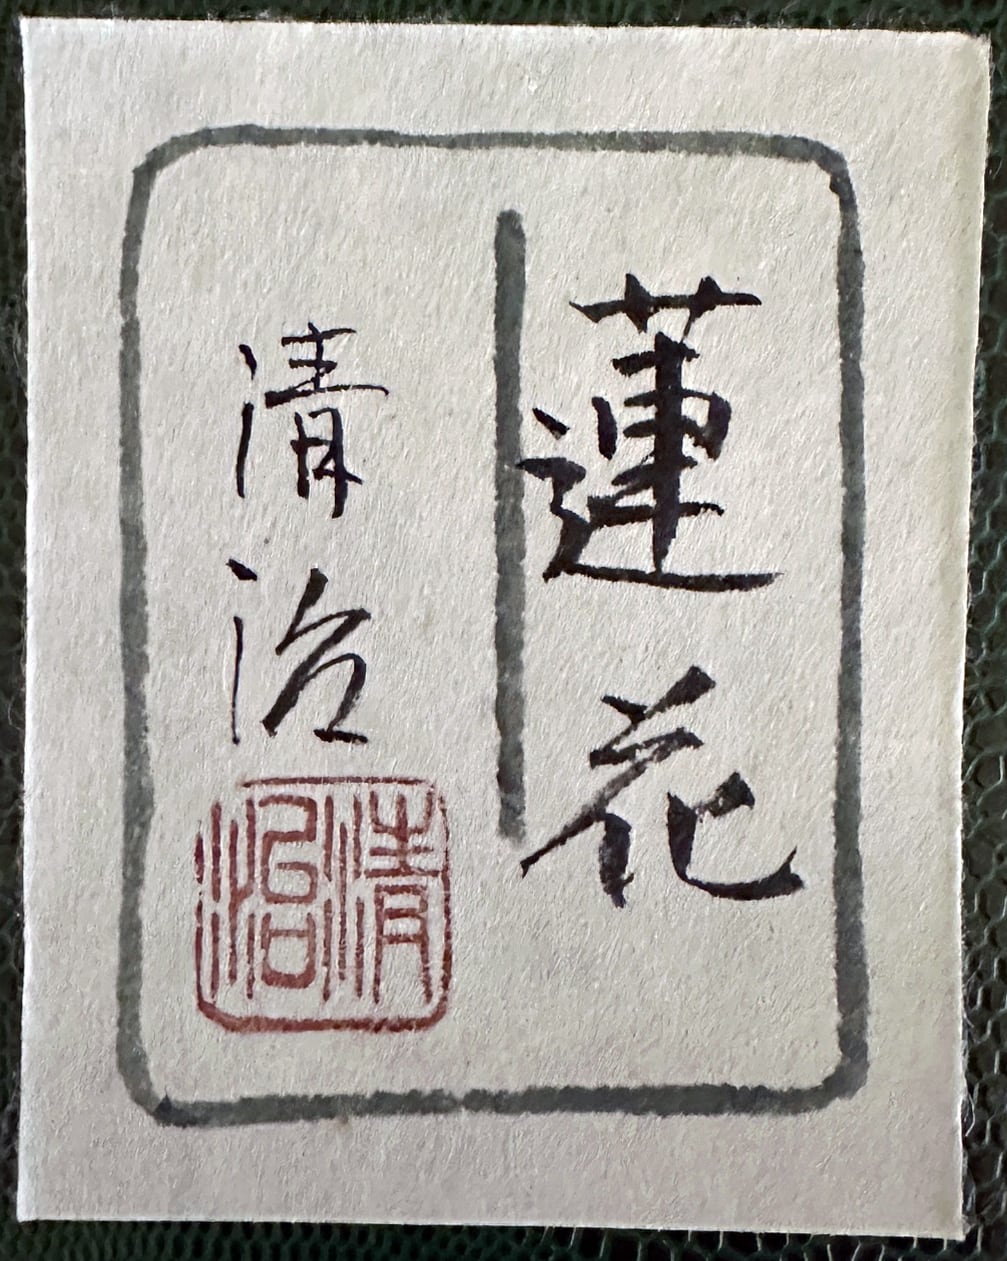 蓮花
清治
清治